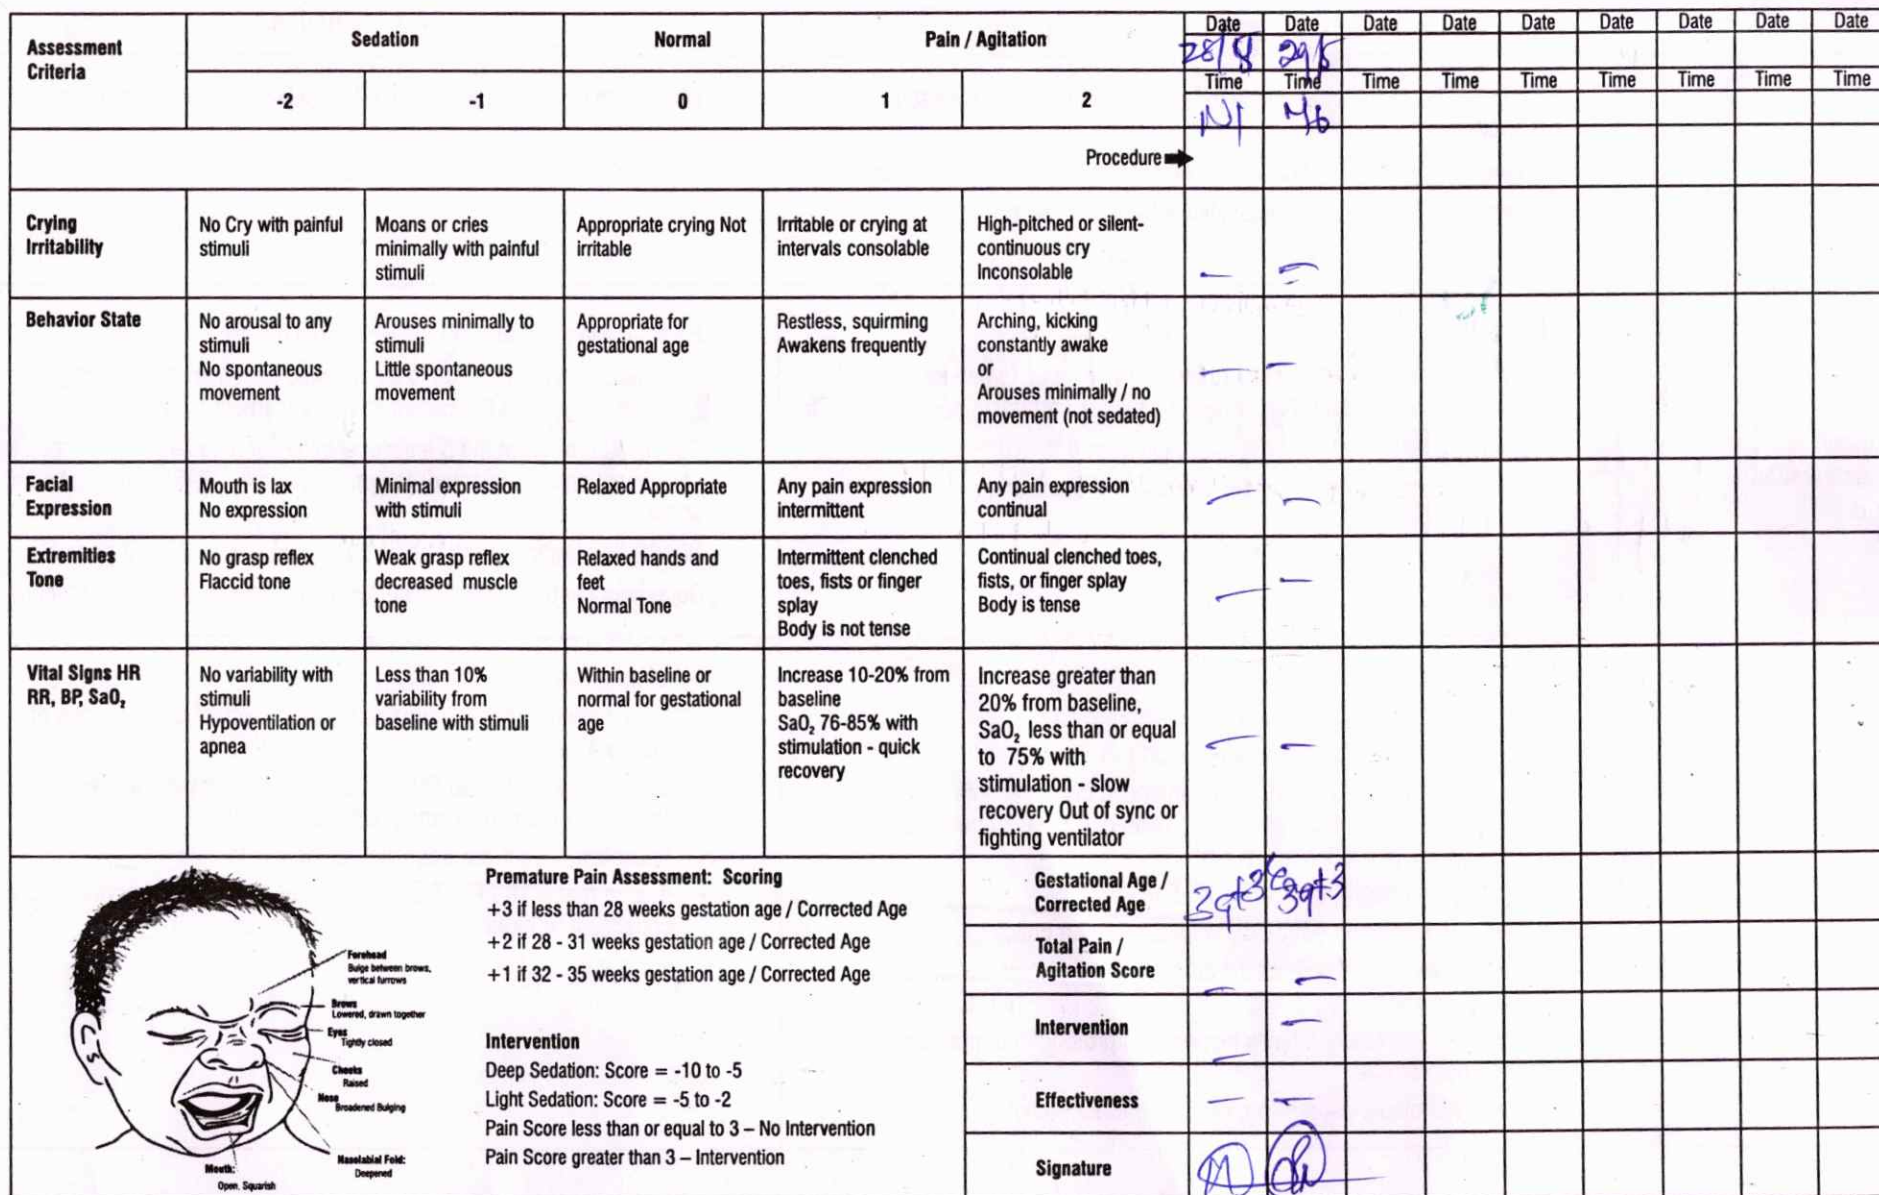 Assessment Criteria
Sedation
Normal
Pain / Agitation
Date Date Date Date Date Date Date Date Date
28/8 29/8
-2 -1 0 1 2
Time Time Time Time Time Time Time Time Time
N1
Procedure
Crying Irritability
No Cry with painful stimuli
Moans or cries minimally with painful stimuli
Appropriate crying Not irritable
Irritable or crying at intervals consolable
High-pitched or silent-continuous cry
Inconsolable
— —
Behavior State
No arousal to any stimuli
No spontaneous movement
Arouses minimally to stimuli
Little spontaneous movement
Appropriate for gestational age
Restless, squirming
Awakens frequently
Arching, kicking constantly awake
or
Arouses minimally / no movement (not sedated)
— —
Facial Expression
Mouth is lax
No expression
Minimal expression with stimuli
Relaxed Appropriate
Any pain expression intermittent
Any pain expression continual
— —
Extremities Tone
No grasp reflex
Flaccid tone
Weak grasp reflex decreased muscle tone
Relaxed hands and feet
Normal Tone
Intermittent clenched toes, fists or finger splay
Body is not tense
Continual clenched toes, fists, or finger splay
Body is tense
— —
Vital Signs HR RR, BP, SaO₂
No variability with stimuli
Hypoventilation or apnea
Less than 10% variability from baseline with stimuli
Within baseline or normal for gestational age
Increase 10-20% from baseline
SaO₂ 76-85% with stimulation - quick recovery
Increase greater than 20% from baseline, SaO₂ less than or equal to 75% with stimulation - slow recovery Out of sync or fighting ventilator
— —
Forehead
Bulge between brows, vertical furrows
Brows
Lowered, drawn together
Eyes
Tightly closed
Cheeks
Raised
Nose
Broadened Bulging
Nasolabial Fold:
Deepened
Mouth:
Open, Squarish
Premature Pain Assessment: Scoring
+3 if less than 28 weeks gestation age / Corrected Age
+2 if 28 - 31 weeks gestation age / Corrected Age
+1 if 32 - 35 weeks gestation age / Corrected Age
Intervention
Deep Sedation: Score = -10 to -5
Light Sedation: Score = -5 to -2
Pain Score less than or equal to 3 – No Intervention
Pain Score greater than 3 – Intervention
Gestational Age / Corrected Age
39+3 39+3
Total Pain / Agitation Score
— —
Intervention
— —
Effectiveness
— —
Signature